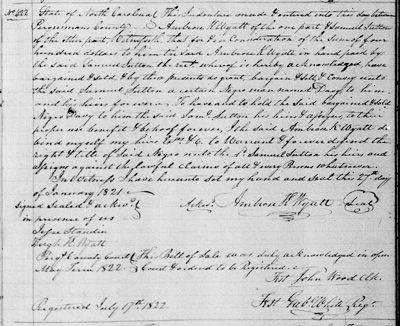 No 422 State of North Carolina This Indenture made & entered into this day between
Perquimans County Ambrose K Wyatt of the one part & Samuel Sutton
of the other part, Witnesseth that for & in Consideration of the Sum of four
hundred dollars to him the said Ambrose K Wyatt in hand paid by
the said Samuel Sutton the rect whereof is hereby acknowledged, have
bargained & sold & by these presents do grant, bargain & Sell, & Convey unto
the said Samuel Sutton a certain Negro man named Davy to him
and his heirs forever. To have and to hold the said bargained & sold
Negro Davy to him the said Saml Sutton his heirs & assigns, to their
proper use benefit & behoof forever, I the said Ambrose K Wyatt do
bind myself my heirs Exrs &c. to Warrant & forever defend the
right & title of said Negro unto the sd Samuel Sutton his heirs and
assigns against the lawful Claims of all & every Person Whatsoever.
In Witness I have hereunto set my hand and Seal this 27th day
of January 1821.
signed Sealed & acknd Ambrose K Wyatt Seal
in presence of us
Jesse Standin
Hugh K Wyatt
Perqs County Court This Bill of Sale was duly acknowledged in open
May Term 1822. Court & ordered to be Registered.
Test John Wood Clk.
Registered July 17th 1822. Test Gabl White Regr.